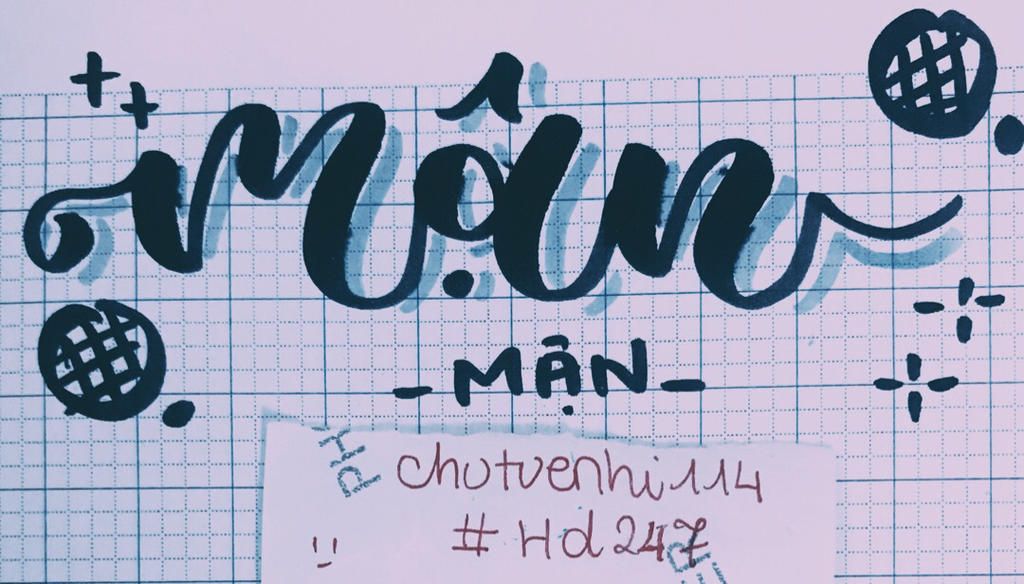 mận
- MẬN -
Hd
chutuenhi114
# Hd 247